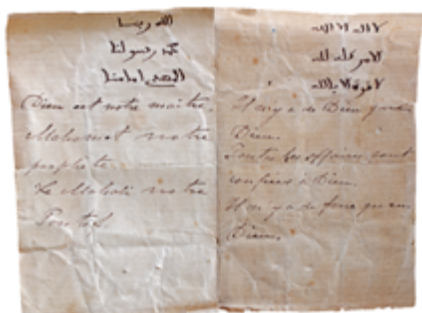 الله ربنا
محمد رسولنا
المهدي امامنا
Dieu est notre maître,
Mahomet notre
prophète
Le Mahdi notre
لا اله الا الله
الامر كله لله
لا قوة الا بالله
Il n'y a de Dieu que
Dieu.
Toutes les affaires sont
confiées à Dieu.
Il n'y a de force qu'en
Dieu.